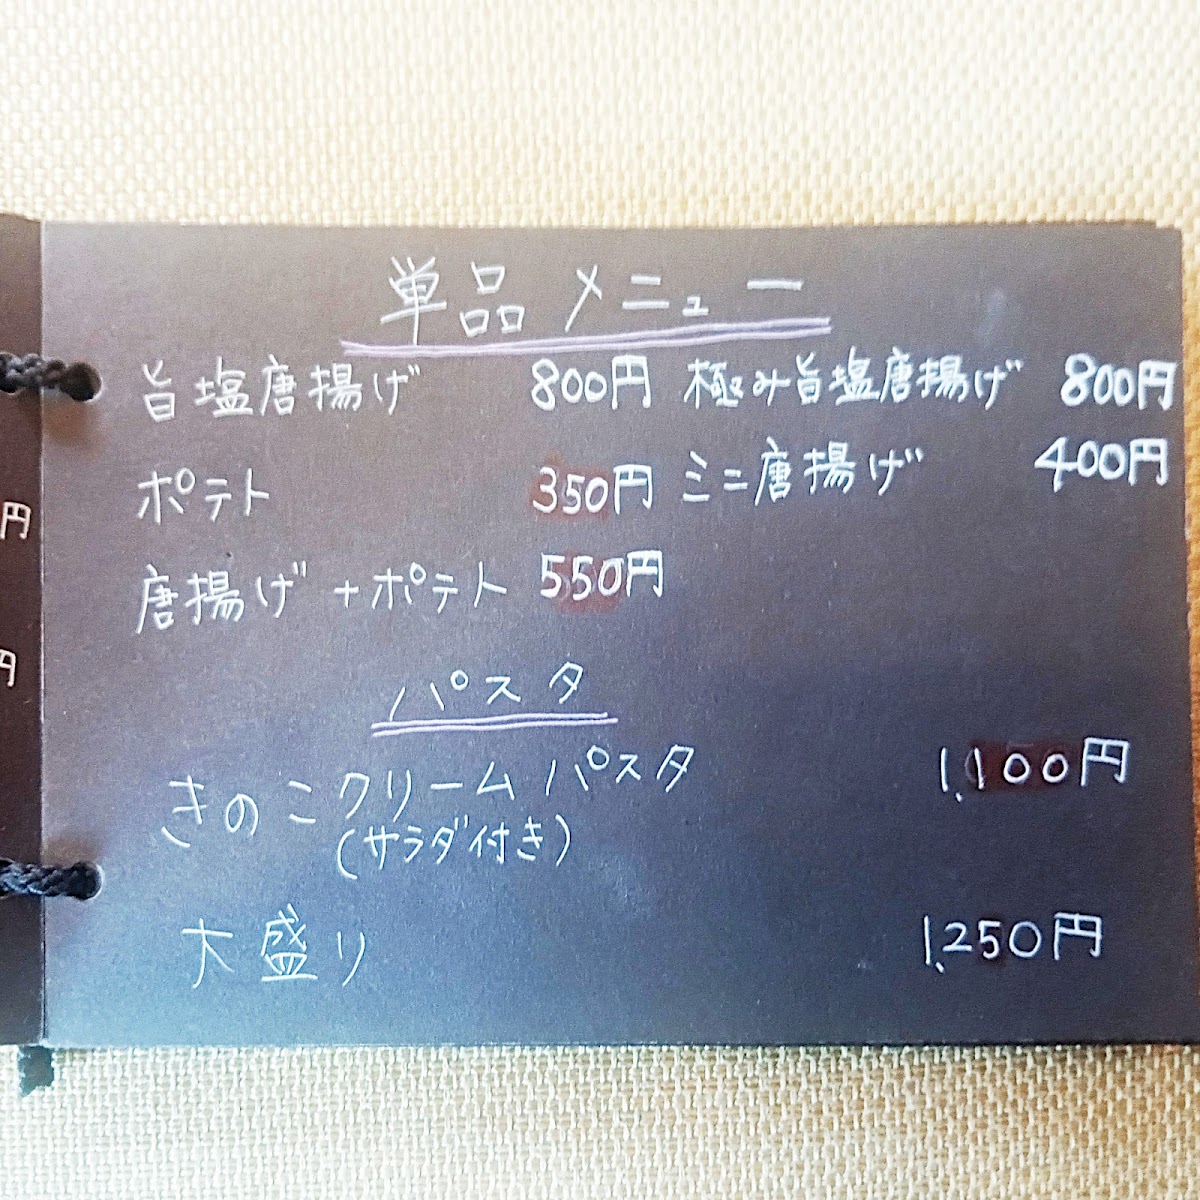 単品メニュー
旨塩唐揚げ 800円 極み旨塩唐揚げ 800円
ポテト 350円 ミニ唐揚げ 400円
唐揚げ+ポテト 550円
パスタ
きのこクリームパスタ 1,100円
(サラダ付き)
大盛り 1,250円
円
円